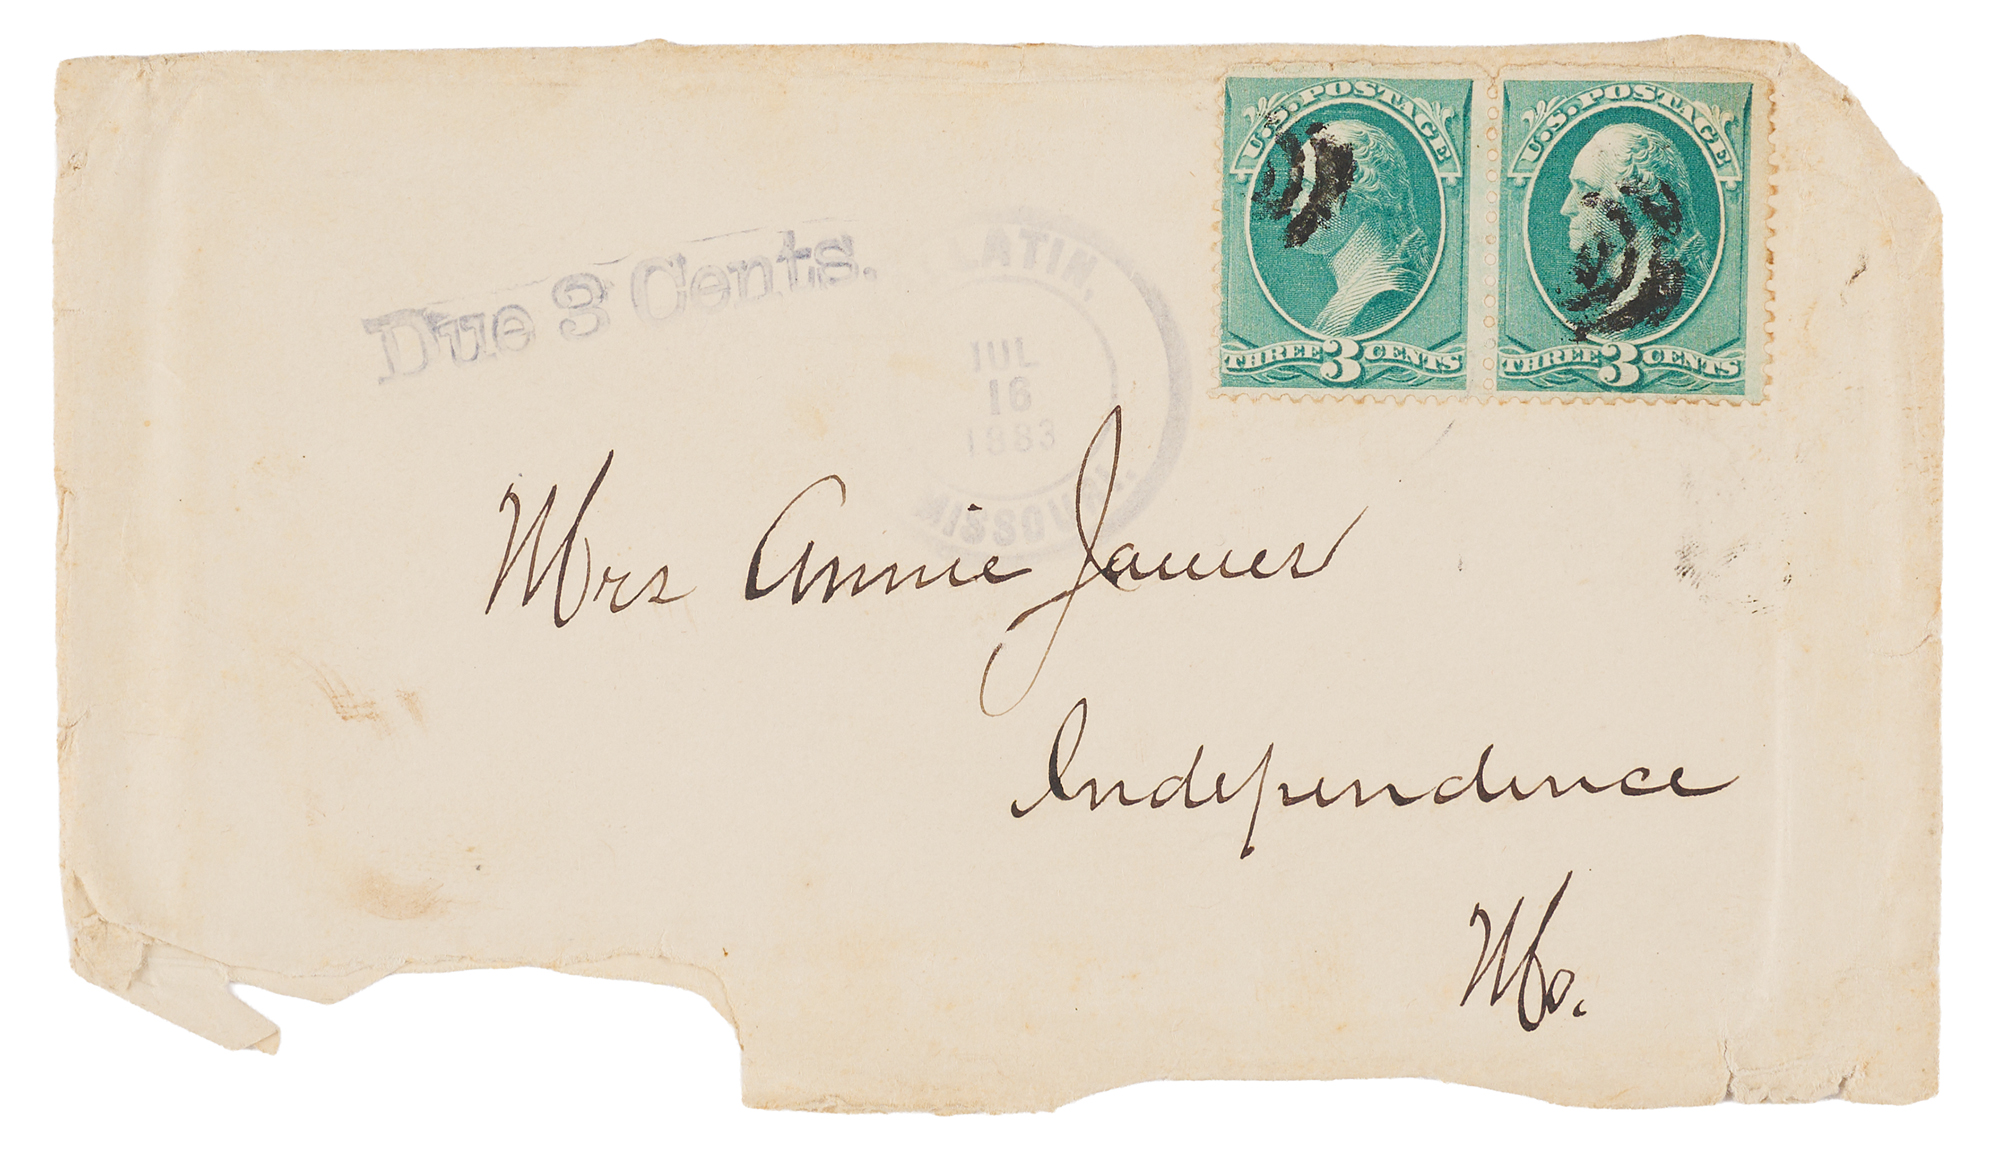 U.S. POSTAGE
THREE 3 CENTS
U.S. POSTAGE
THREE 3 CENTS
Due 3 Cents.
LATIN,
JUL
16
1883
MISSOURI.
Mrs Annie James
Independence
Mo.